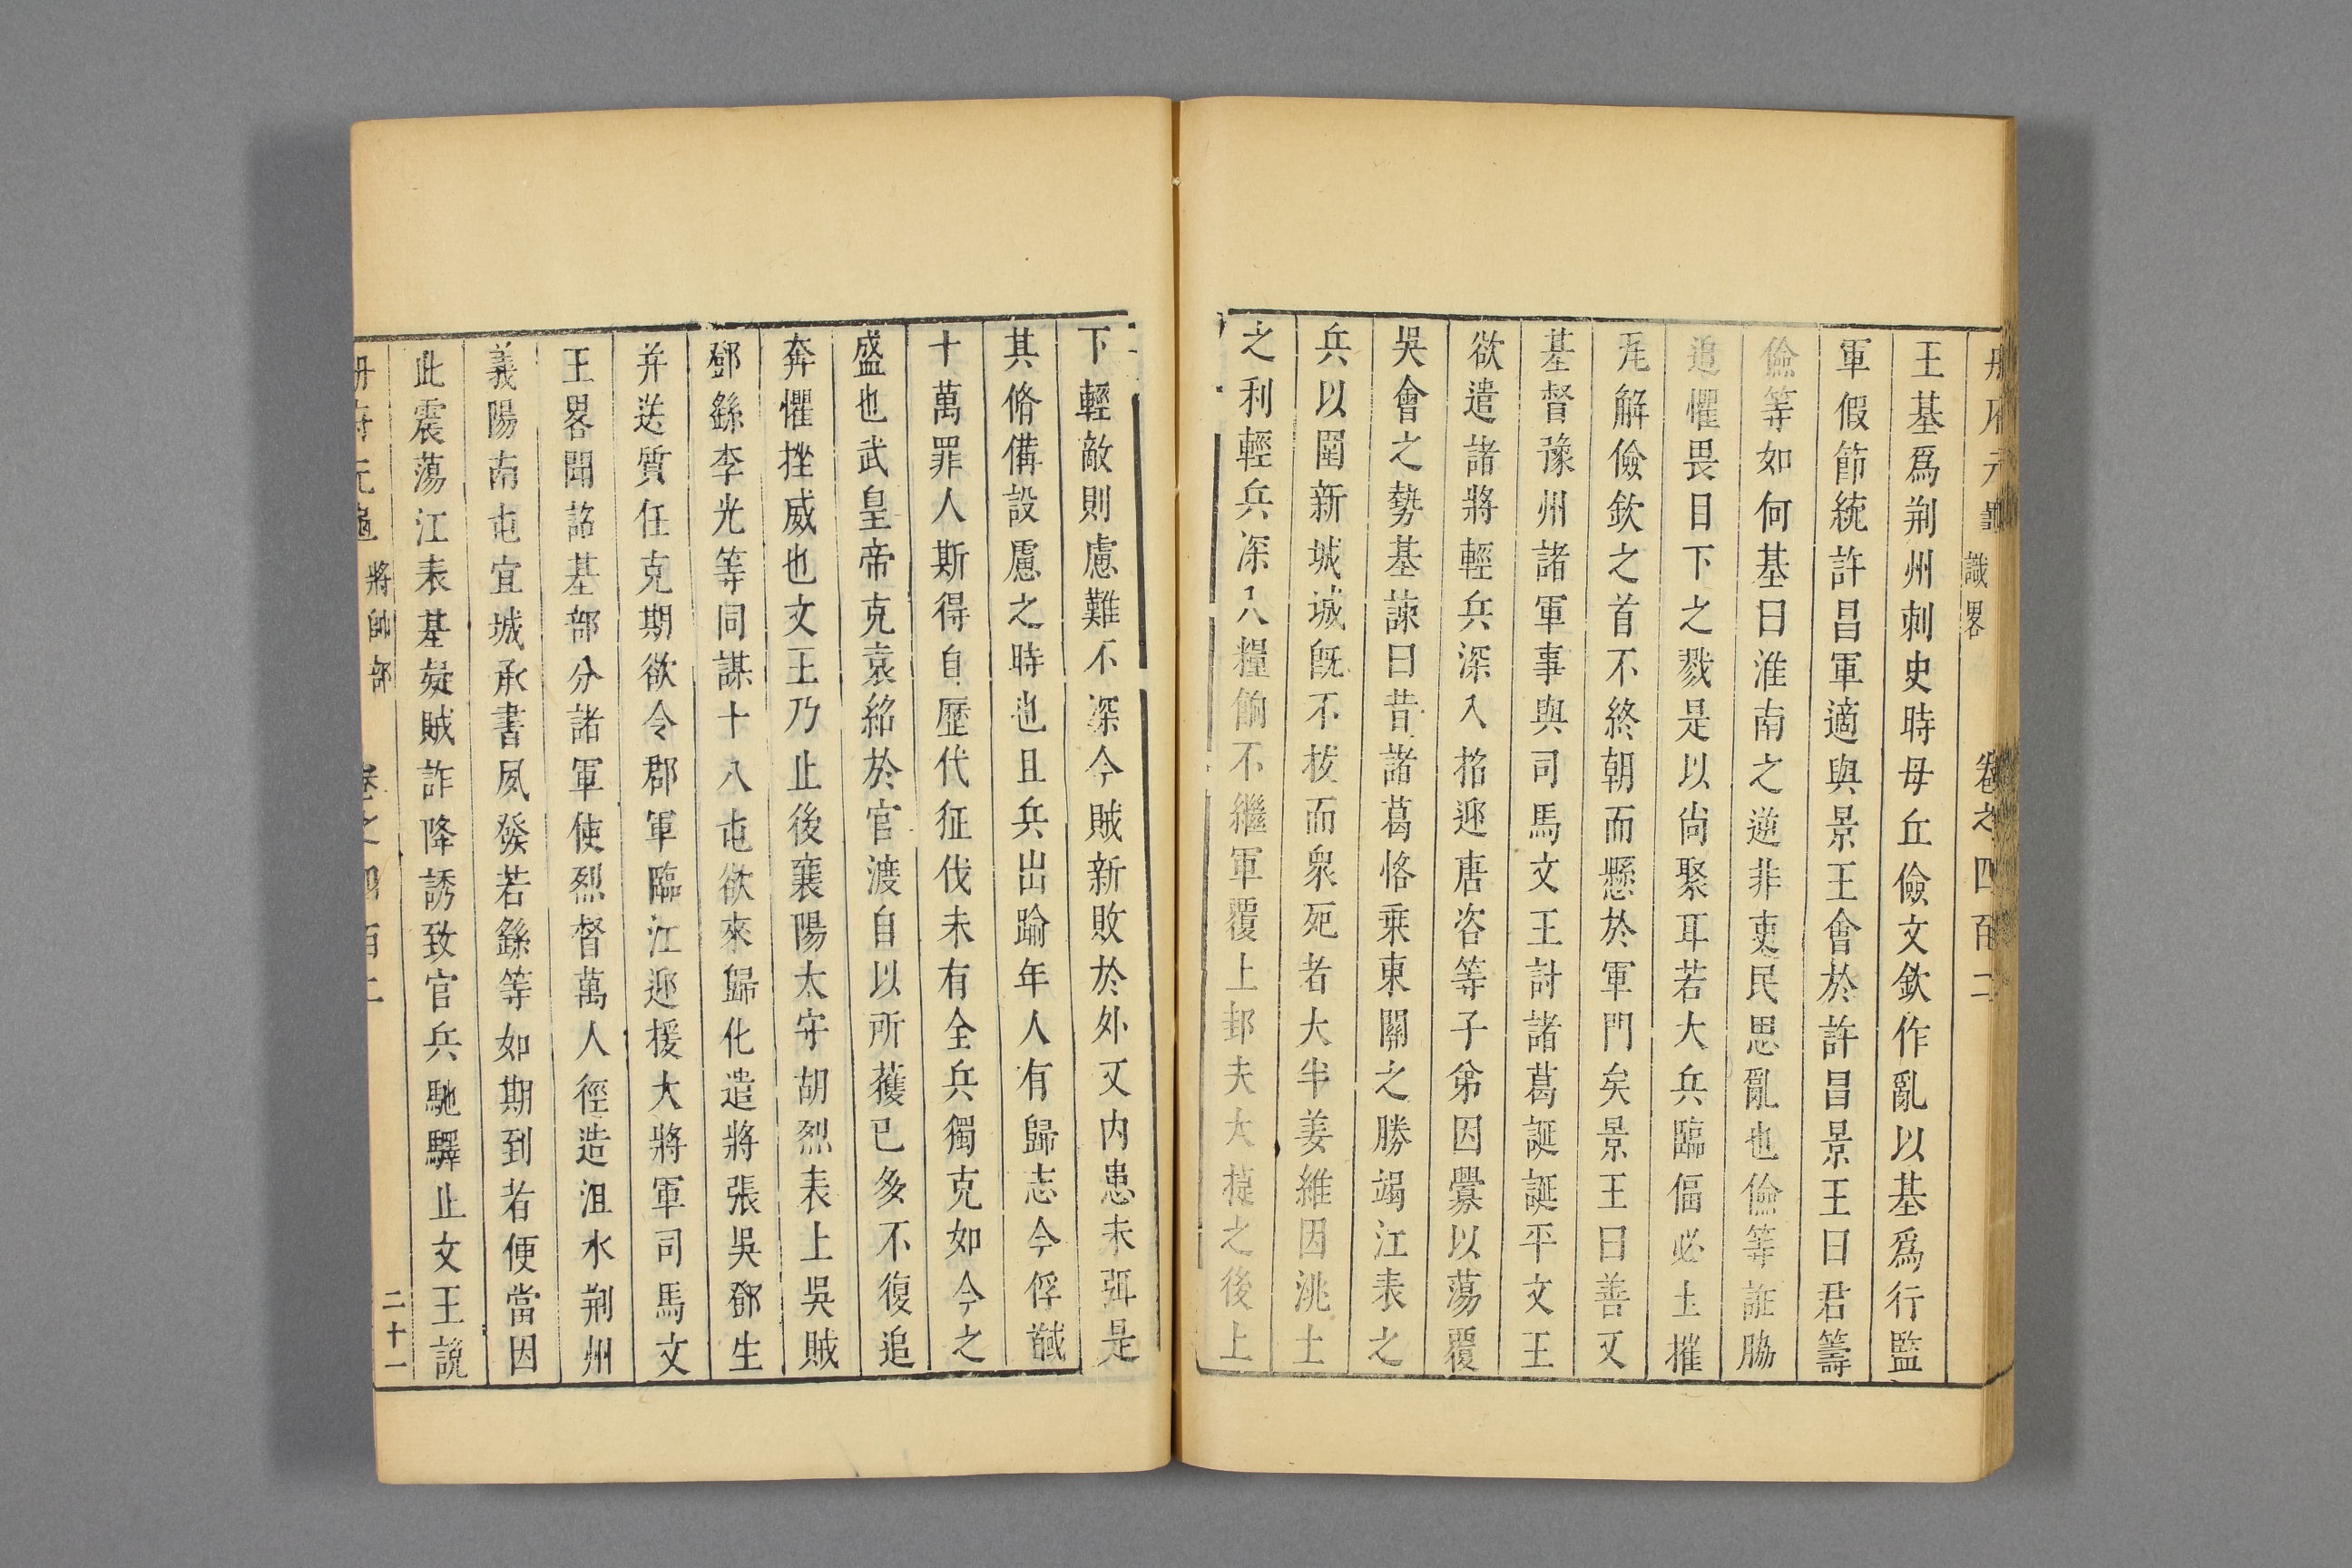 册府元龜 識畧 卷之四百二
王基爲荆州刺史時毋丘儉文欽作亂以基爲行監
軍假節統許昌軍適與景王會於許昌景王曰君籌
儉等如何基曰淮南之逆非吏民思亂也儉等誑脇
追懼畏目下之戮是以尙聚耳若大兵臨偪必土摧
瓦解儉欽之首不終朝而懸於軍門矣景王曰善又
基督豫州諸軍事與司馬文王討諸葛誕誕平文王
欲遣諸將輕兵深入招迎唐咨等子弟因釁以蕩覆
吳會之勢基諫曰昔諸葛恪乗東關之勝竭江表之
兵以圍新城城旣不拔而衆死者大半姜維因洮土
之利輕兵深入糧餉不繼軍覆上邽夫大㨗之後上
下輕敵則慮難不深今賊新敗於外又内患未弭是
其脩備設慮之時也且兵出踰年人有歸志今俘馘
十萬罪人斯得自歷代征伐未有全兵獨克如今之
盛也武皇帝克袁紹於官渡自以所獲已多不復追
奔懼挫威也文王乃止後襄陽太守胡烈表上吳賊
鄧繇李光等同謀十八屯欲來歸化遣將張吳鄧生
并送質任克期欲令郡軍臨江迎援大將軍司馬文
王畧聞詔基部分諸軍使烈督萬人徑造沮水荆州
義陽南屯宜城承書夙發若繇等如期到者便當因
此震蕩江表基疑賊詐降誘致官兵馳驛止文王說
册府元龜 將帥部 卷之四百二 二十一